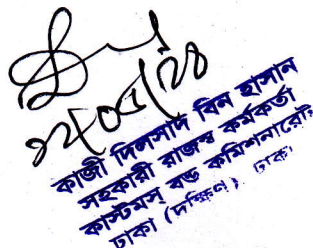 কাজী দিলসাদ বিন হাসান
সহকারী রাজস্ব কর্মকর্তা
কাস্টমস্ বন্ড কমিশনারেট
ঢাকা (দক্ষিণ), ঢাকা